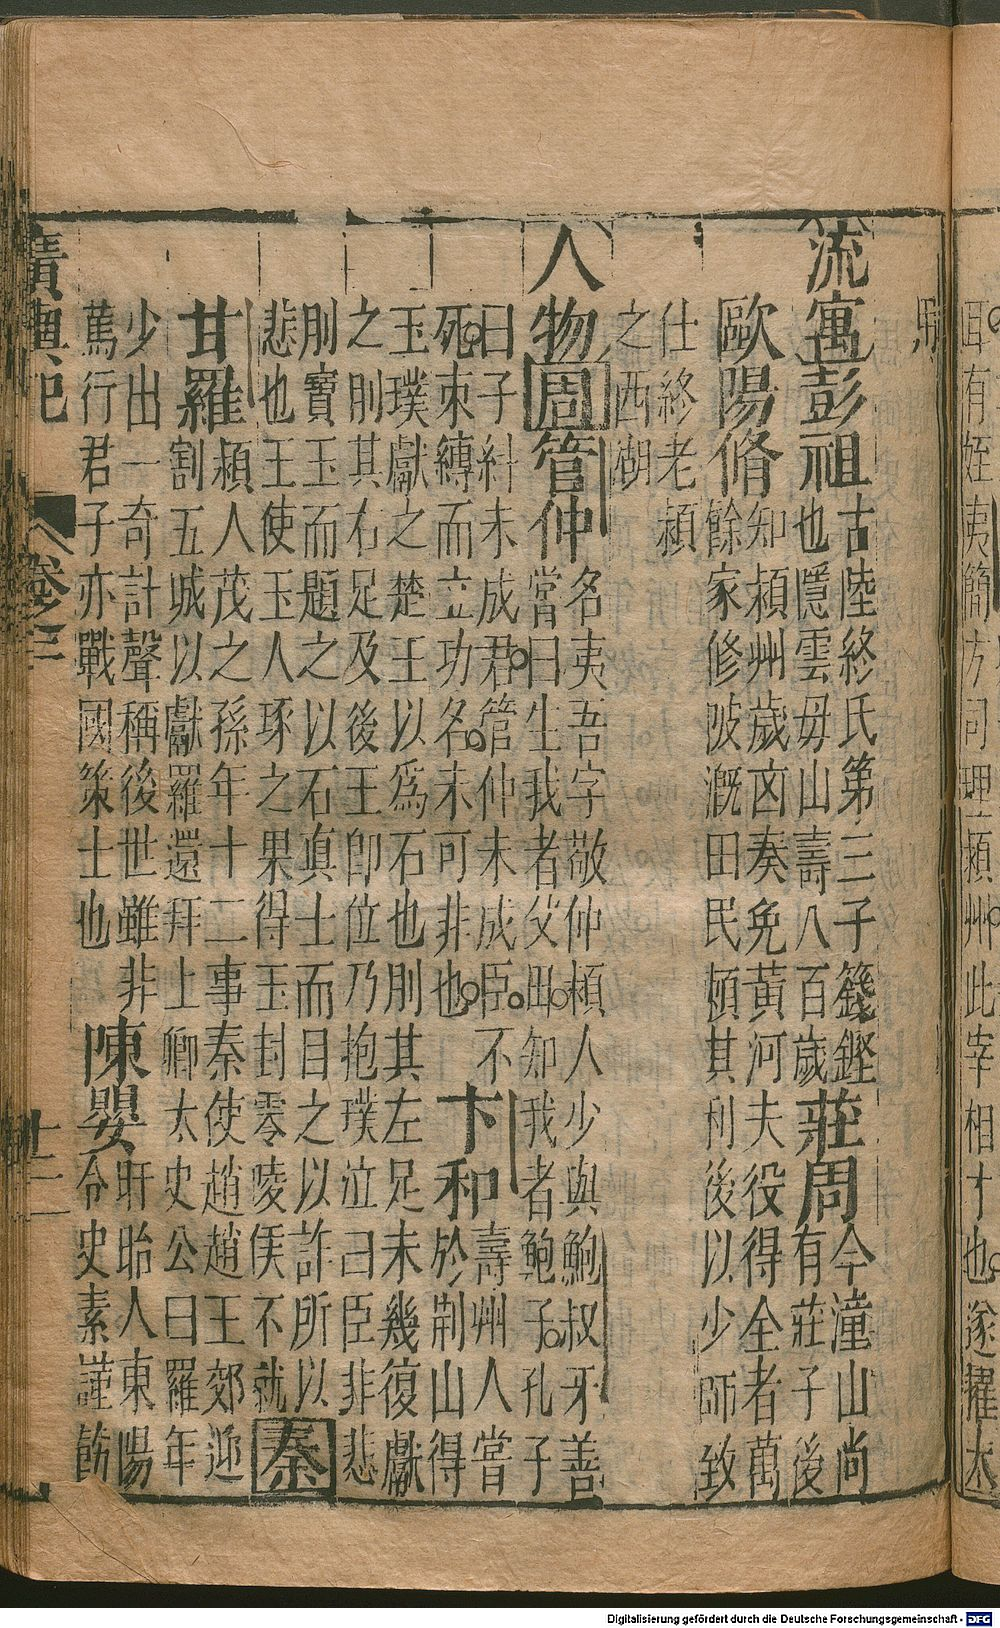 耳有姪夷簡方司理潁州此宰相才也遂擢太
馬
流寓彭祖古陸終氏第三子籛鏗莊周今潼山尚
也隱雲毋山壽八百歲有莊子後
歐陽脩知潁州歲凶奏免黃河夫役得全者萬
餘家修陂溉田民頓其利後以少師致
仕終老潁
之西湖
人物周管仲名夷吾字敬仲頴人少與鮑叔牙善
嘗曰生我者父毋知我者鮑子孔子
曰子糾未成君管仲未成臣不卞和壽州人嘗
死束縛而立功名未可非也於荆山得
玉璞獻之楚王以爲石也刖其左足未幾復獻
之刖其右足及後王卽位乃抱璞泣曰臣非悲
刖寶玉而題之以石真士而目之以詐所以
悲也王使玉人琢之果得玉封零陵侯不就秦
甘羅潁人茂之孫年十二事秦使趙趙王郊迎
割五城以獻羅還拜上卿太史公曰羅年
少出一奇計聲稱後世雖非陳嬰盱眙人東陽
篤行君子亦戰國策士也令史素謹飭
廣輿記
卷三
十二
Digitalisierung gefördert durch die Deutsche Forschungsgemeinschaft - DFG